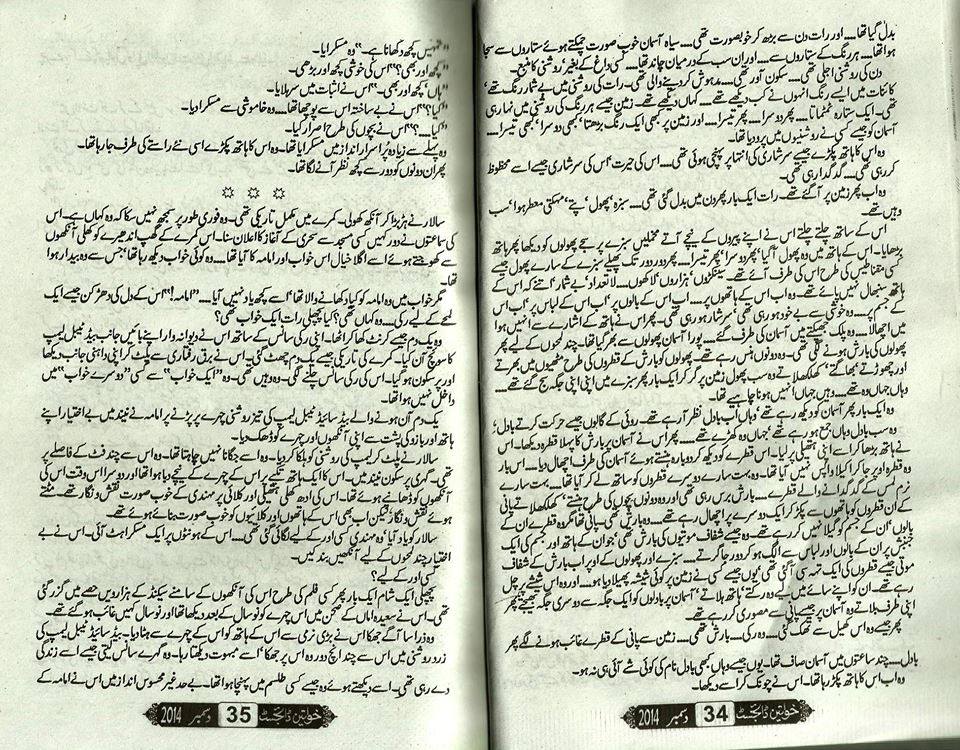 بدل گیا تھا.... اور رات دن سے بڑھ کر خوبصورت تھی.... سیاہ آسمان خوب صورت چمکتے ہوئے ستاروں سے سجا
ہوا تھا.... ہر رنگ کے ستاروں سے.... اور ان سب کے درمیان چاند تھا.... کسی داغ کے بغیر روشنی کا منبع۔
دن کی روشنی اجلی تھی.... سکون آور تھی.... مدہوش کر دینے والی تھی۔ رات کی روشنی میں بے شمار رنگ تھے'
کائنات میں ایسے رنگ انہوں نے کب دیکھے تھے.... کہاں دیکھے تھے۔ زمین جیسے ہر رنگ کی روشنی میں نہا رہی
تھی۔ ایک ستارہ ٹمٹماتا.... پھر دوسرا.... پھر تیسرا.... اور زمین پر کبھی ایک رنگ بڑھتا' کبھی دوسرا' کبھی تیسرا....
آسمان کو جیسے کسی نے روشنیوں میں پرو دیا تھا۔
وہ اس کا ہاتھ پکڑے جیسے سرشاری کی انتہا پر پہنچی ہوئی تھی.... اس کی حیرت' اس کی سرشاری جیسے اسے محظوظ
کر رہی تھی.... گدگدا رہی تھی۔
وہ اب پھر زمین پر آ گئے تھے۔ رات ایک بار پھر دن میں بدل گئی تھی.... سبزہ' پھول' پتے' مہکتی معطر ہوا' سب
وہیں تھے۔
اس کے ساتھ چلتے چلتے اس نے اپنے پیروں کے نیچے آتے مخملیں سبزے پر سجے پھولوں کو دیکھا پھر ہاتھ
بڑھایا۔ اس کے ہاتھ میں وہ پھول آ گیا' پھر دوسرا' پھر تیسرا.... پھر دور دور تک پھیلے سبزے کے سارے پھول جیسے
کسی مقناطیس کی طرح اس کی طرف آئے تھے۔ سینکڑوں' ہزاروں' لاکھوں.... لاتعداد' بے شمار' اتنے کہ اس کے
ہاتھ سنبھال نہیں پائے تھے۔ وہ اب اس کے ہاتھوں پر.... اب اس کے بالوں پر' اب اس کے لباس پر' اب اس
کے جسم پر.... وہ خوشی سے بے خود ہو رہی تھی' سرشار ہو رہی تھی۔ پھر اس نے ہاتھ کے اشارے سے انہیں ہوا
میں اچھالا.... وہ پلک جھپکتے میں آسمان کی طرف گئے.... پورا آسمان پھولوں سے بھر گیا تھا۔ چند لمحوں کے لیے پھر
پھولوں کی بارش ہونے لگی تھی.... وہ دونوں ہنس رہے تھے۔ پھولوں کو بارش کے قطروں کی طرح مٹھیوں میں بھرتے
اور چھوڑتے بھاگتے' کھلکھلاتے وہ سب پھول زمین پر گر کر ایک بار پھر سبزے میں اپنی اپنی جگہ سج گئے تھے....
وہاں' جہاں وہ تھے.... وہیں جہاں انہیں ہونا چاہیے تھا۔
وہ ایک بار پھر آسمان کو دیکھ رہے تھے' وہاں اب بادل نظر آ رہے تھے۔ روئی کے گالوں جیسے حرکت کرتے بادل'
وہ سب بادل وہاں جمع ہو رہے تھے' جہاں وہ کھڑے تھے.... پھر اس نے آسمان پر بارش کا پہلا قطرہ دیکھا۔ اس
نے ہاتھ بڑھا کر اسے اپنی ہتھیلی پر لیا۔ اس قطرے کو دیکھ کر دوبارہ ہنستے ہوئے آسمان کی طرف اچھال دیا۔ اس بار
وہ قطرہ اوپر جا کر اکیلا واپس نہیں آیا تھا۔ وہ بہت سارے دوسرے قطروں کو ساتھ لے کر آیا تھا.... بہت سارے
نرم لمس کے گدگدانے والے قطرے.... بارش برس رہی تھی اور وہ دونوں بچوں کی طرح ہنستے' کھلکھلاتے پانی
کے ان قطروں کو ہاتھوں سے پکڑ کر ایک دوسرے پر اچھال رہے تھے.... وہ بارش تھی۔ پانی تھا مگر وہ قطرے ان کے
بالوں' ان کے جسم کو گیلا نہیں کر رہے تھے۔ وہ جیسے شفاف موتیوں کی بارش تھی' جو ان کے ہاتھ اور جسم کی ایک
جنبش پر ان کے بالوں اور لباس سے الگ ہو کر دور جا گرتے.... سبزے اور پھولوں کے اوپر اب بارش کے شفاف
موتی جیسے قطروں کی ایک تہہ سی آ گئی تھی' یوں جیسے کسی نے زمین پر کوئی شیشہ پھیلا دیا ہو.... اور وہ اس شیشے پر چل
رہے تھے۔ ان کو اپنے سائے میں لیے وہ رکتے' ہاتھ ہلاتے' آسمان پر بادلوں کو ایک جگہ سے دوسری جگہ بھیجتے پھر
اپنی طرف بلاتے وہ آسمان پر جیسے پانی سے مصوری کر رہے تھے۔
پھر جیسے وہ اس کھیل سے تھک گئی.... وہ رکی.... بارش تھمی.... زمین سے پانی کے قطرے غائب ہونے لگے پھر
بادل.... چند ساعتوں میں آسمان صاف تھا۔ یوں جیسے وہاں کبھی بادل نام کی کوئی شے آئی ہی نہ ہو۔
وہ اب اس کا ہاتھ پکڑ رہا تھا۔ اس نے چونک کر اسے دیکھا۔
خواتین ڈائجسٹ 34 دسمبر 2014
"تمہیں کچھ دکھانا ہے۔" وہ مسکرایا۔
"کچھ اور بھی؟" اس کی خوشی کچھ اور بڑھی۔
"ہاں' کچھ اور بھی۔" اس نے اثبات میں سر ہلایا۔
"کیا؟" اس نے بے ساختہ اس سے پوچھا تھا.... وہ خاموشی سے مسکرا دیا۔
"کیا....؟" اس نے بچوں کی طرح اصرار کیا۔
وہ پہلے سے زیادہ پراسرار انداز میں مسکرایا تھا۔ وہ اس کا ہاتھ پکڑے اسی نئے راستے کی طرف جا رہا تھا۔
پھر ان دونوں کو دور سے کچھ نظر آنے لگا تھا۔
☼ ☼ ☼
سالار نے ہڑبڑا کر آنکھ کھولی۔ کمرے میں مکمل تاریکی تھی۔ وہ فوری طور پر سمجھ نہیں سکا کہ وہ کہاں ہے۔ اس
کی سماعتوں نے دور کہیں کسی مسجد سے سحری کے آغاز کا اعلان سنا۔ اس کمرے کے گھپ اندھیرے کو کھلی آنکھوں
سے کھوجتے ہوئے اسے اگلا خیال اس خواب اور امامہ کا آیا تھا.... وہ کوئی خواب دیکھ رہا تھا' جس سے وہ بیدار ہوا
تھا۔
مگر خواب میں وہ امامہ کو کیا دکھانے والا تھا' اسے کچھ یاد نہیں آیا.... "امامہ!" اس کے دل کی دھڑکن جیسے ایک
لمحے کے لیے رکی.... وہ کہاں تھی؟ کیا پچھلی رات ایک خواب تھی؟
وہ یک دم جیسے کرنٹ کھا کر اٹھا۔ اپنی رکی سانس کے ساتھ اس نے دیوانہ وار اپنے بائیں جانب بیڈ ٹیبل لیمپ
کا سوئچ آن کیا۔ کمرے کی تاریکی جیسے یک دم چھٹ گئی۔ اس نے برق رفتاری سے پلٹ کر اپنی داہنی جانب دیکھا
اور پرسکون ہو گیا۔ اس کی رکی سانس چلنے لگی۔ وہ وہیں تھی۔ وہ "ایک خواب" سے کسی "دوسرے خواب" میں
داخل نہیں ہوا تھا۔
یک دم آن ہونے والے بیڈ سائیڈ ٹیبل لیمپ کی تیز روشنی چہرے پر پڑنے پر امامہ نے نیند میں بے اختیار اپنے
ہاتھ اور بازو کی پشت سے اپنی آنکھوں اور چہرے کو ڈھک دیا۔
سالار نے پلٹ کر لیمپ کی روشنی کو ہلکا کر دیا۔ وہ اسے جگانا نہیں چاہتا تھا۔ وہ اس سے چند فٹ کے فاصلے پر
تھی۔ گہری پرسکون نیند میں۔ اس کا ایک ہاتھ تکیے پر اس کے چہرے کے نیچے دبا ہوا تھا اور دوسرا اس وقت اس کی
آنکھوں کو ڈھانپے ہوئے تھا۔ اس کی ادھ کھلی ہتھیلی اور کلائی پر مہندی کے خوب صورت نقش و نگار تھے۔ مٹتے
ہوئے نقش و نگار' لیکن اب بھی اس کے ہاتھوں اور کلائیوں کو خوب صورت بنائے ہوئے تھے۔
سالار کو یاد آیا' وہ مہندی کسی اور کے لیے لگائی گئی تھی.... اس کے ہونٹوں پر ایک مسکراہٹ آئی۔ اس نے بے
اختیار چند لمحوں کے لیے آنکھیں بند کیں۔
کسی اور کے لیے؟
پچھلی ایک شام ایک بار پھر کسی فلم کی طرح اس کی آنکھوں کے سامنے سیکنڈ کے ہزارویں حصے میں گزر گئی
تھی۔ اس نے سعیدہ اماں کے صحن میں اس چہرے کو نو سال کے بعد دیکھا تھا اور نو سال کہیں غائب ہو گئے تھے۔
وہ ذرا سا آگے جھکا اس نے بڑی نرمی سے اس کے ہاتھ کو اس کے چہرے سے ہٹا دیا۔ بیڈ سائیڈ ٹیبل لیمپ کی
زرد روشنی میں اس سے چند انچ دور وہ اس پر جھکا' اسے مبہوت دیکھتا رہا۔ وہ گہرے سانس لیتی جیسے اسے زندگی
دے رہی تھی۔ اسے دیکھتے ہوئے وہ جیسے کسی طلسم میں پہنچا ہوا تھا۔ بے حد غیر محسوس انداز میں اس نے امامہ کے
خواتین ڈائجسٹ 35 دسمبر 2014